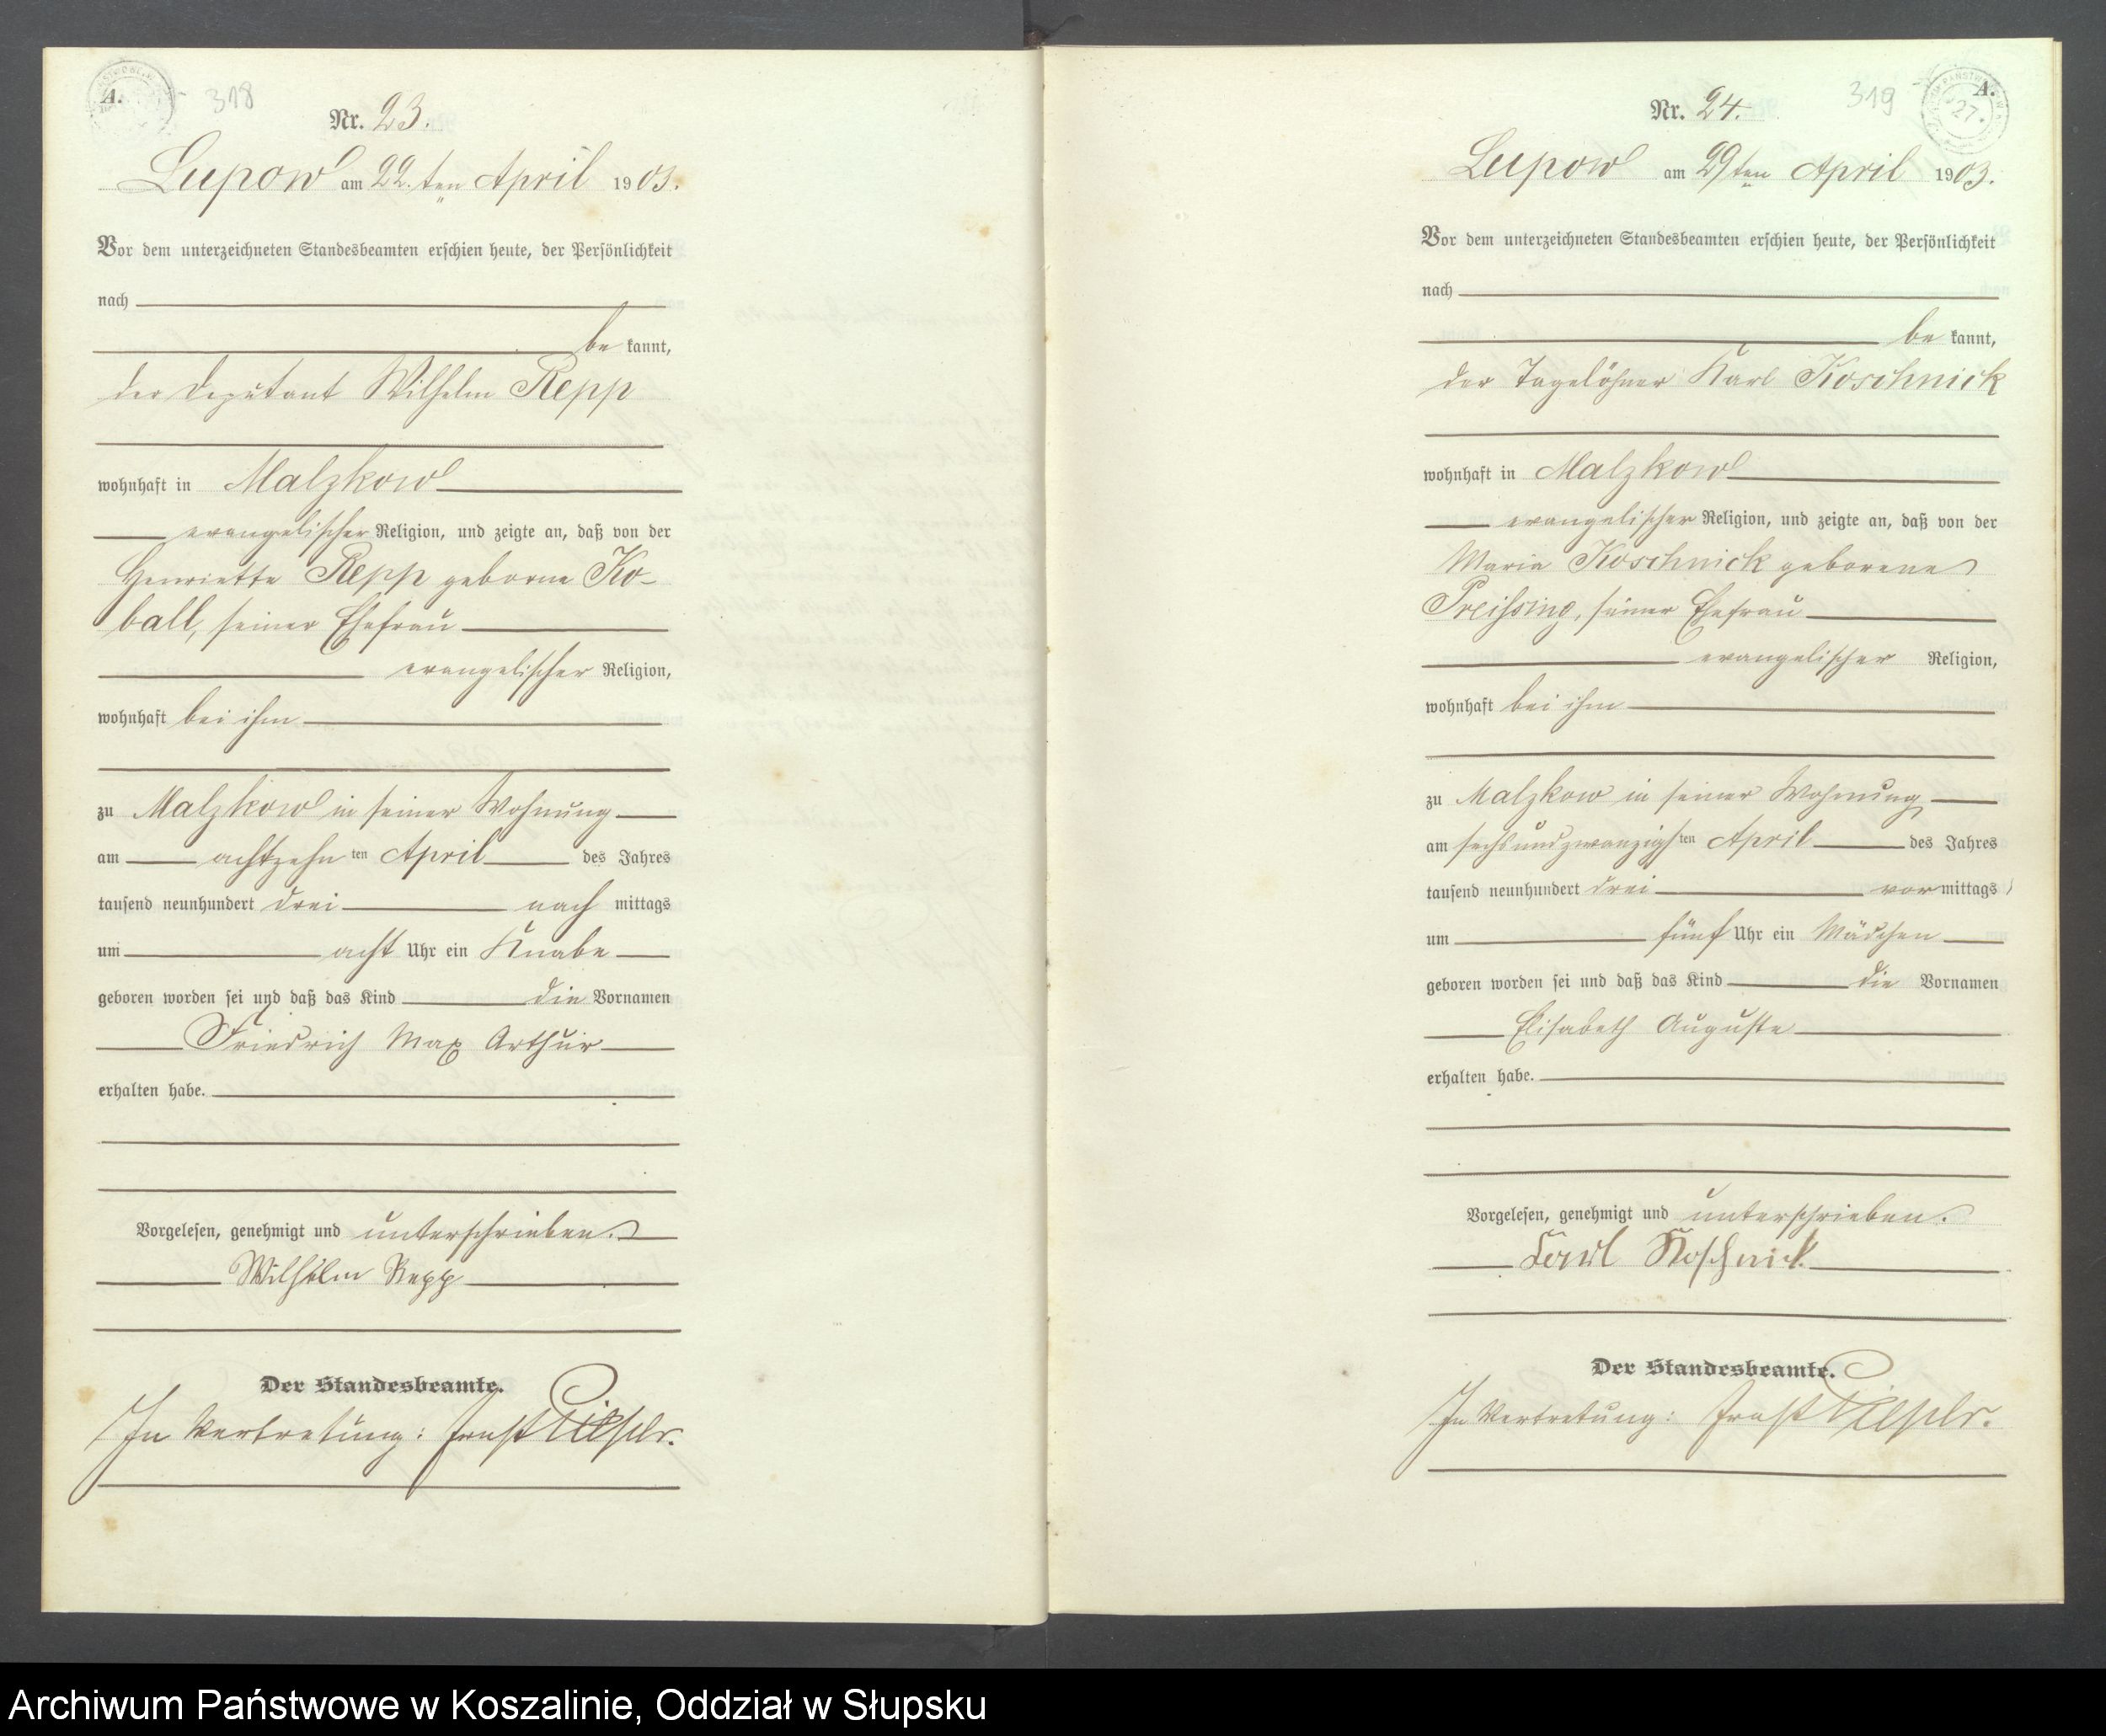 A.
318
Nr. 23.
Lupow am 22.ten April 1903.
Vor dem unterzeichneten Standesbeamten erschien heute, der Persönlichkeit
nach
be kannt,
der Deputant Wilhelm Repp
wohnhaft in Malzkow
evangelischer Religion, und zeigte an, daß von der
Henriette Repp geborne Ko-
ball, seiner Ehefrau
evangelischer Religion,
wohnhaft bei ihm
zu Malzkow in seiner Wohnung
am achtzehn ten April des Jahres
tausend neunhundert drei nach mittags
um acht Uhr ein Knabe
geboren worden sei und daß das Kind die Vornamen
Friedrich Max Arthur
erhalten habe.
Vorgelesen, genehmigt und unterschrieben.
Wilhelm Repp
Der Standesbeamte.
In Vertretung: Ernst
319
A.
27
Nr. 24.
Lupow am 29ten April 1903.
Vor dem unterzeichneten Standesbeamten erschien heute, der Persönlichkeit
nach
be kannt,
der Tagelöhner Karl Koschnick
wohnhaft in Malzkow
evangelischer Religion, und zeigte an, daß von der
Maria Koschnick geborene
Preissing, seiner Ehefrau
evangelischer Religion,
wohnhaft bei ihm
zu Malzkow in seiner Wohnung
am sechsundzwanzigsten April des Jahres
tausend neunhundert drei vor mittags
um fünf Uhr ein Mädchen
geboren worden sei und daß das Kind die Vornamen
Elisabeth Auguste
erhalten habe.
Vorgelesen, genehmigt und unterschrieben.
Karl Koschnick
Der Standesbeamte.
In Vertretung: Ernst
Archiwum Państwowe w Koszalinie, Oddział w Słupsku